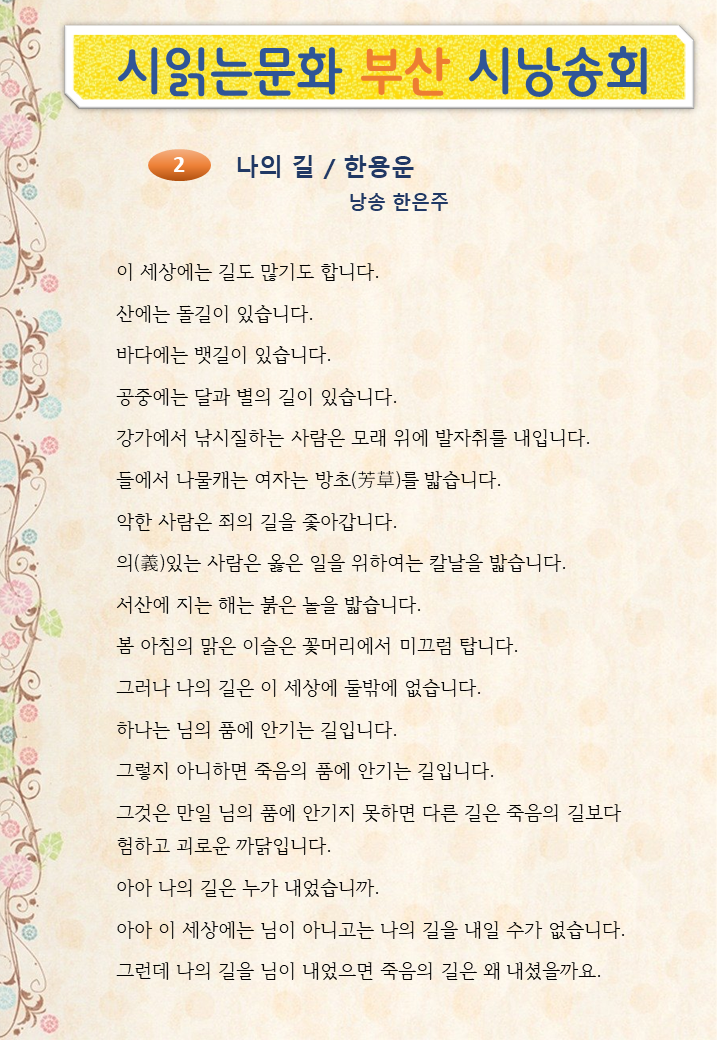 시읽는문화 부산 시낭송회
2 나의 길 / 한용운
낭송 한은주
이 세상에는 길도 많기도 합니다.
산에는 돌길이 있습니다.
바다에는 뱃길이 있습니다.
공중에는 달과 별의 길이 있습니다.
강가에서 낚시질하는 사람은 모래 위에 발자취를 내입니다.
들에서 나물캐는 여자는 방초(芳草)를 밟습니다.
악한 사람은 죄의 길을 좇아갑니다.
의(義)있는 사람은 옳은 일을 위하여는 칼날을 밟습니다.
서산에 지는 해는 붉은 놀을 밟습니다.
봄 아침의 맑은 이슬은 꽃머리에서 미끄럼 탑니다.
그러나 나의 길은 이 세상에 둘밖에 없습니다.
하나는 님의 품에 안기는 길입니다.
그렇지 아니하면 죽음의 품에 안기는 길입니다.
그것은 만일 님의 품에 안기지 못하면 다른 길은 죽음의 길보다
험하고 괴로운 까닭입니다.
아아 나의 길은 누가 내었습니까.
아아 이 세상에는 님이 아니고는 나의 길을 내일 수가 없습니다.
그런데 나의 길을 님이 내었으면 죽음의 길은 왜 내셨을까요.